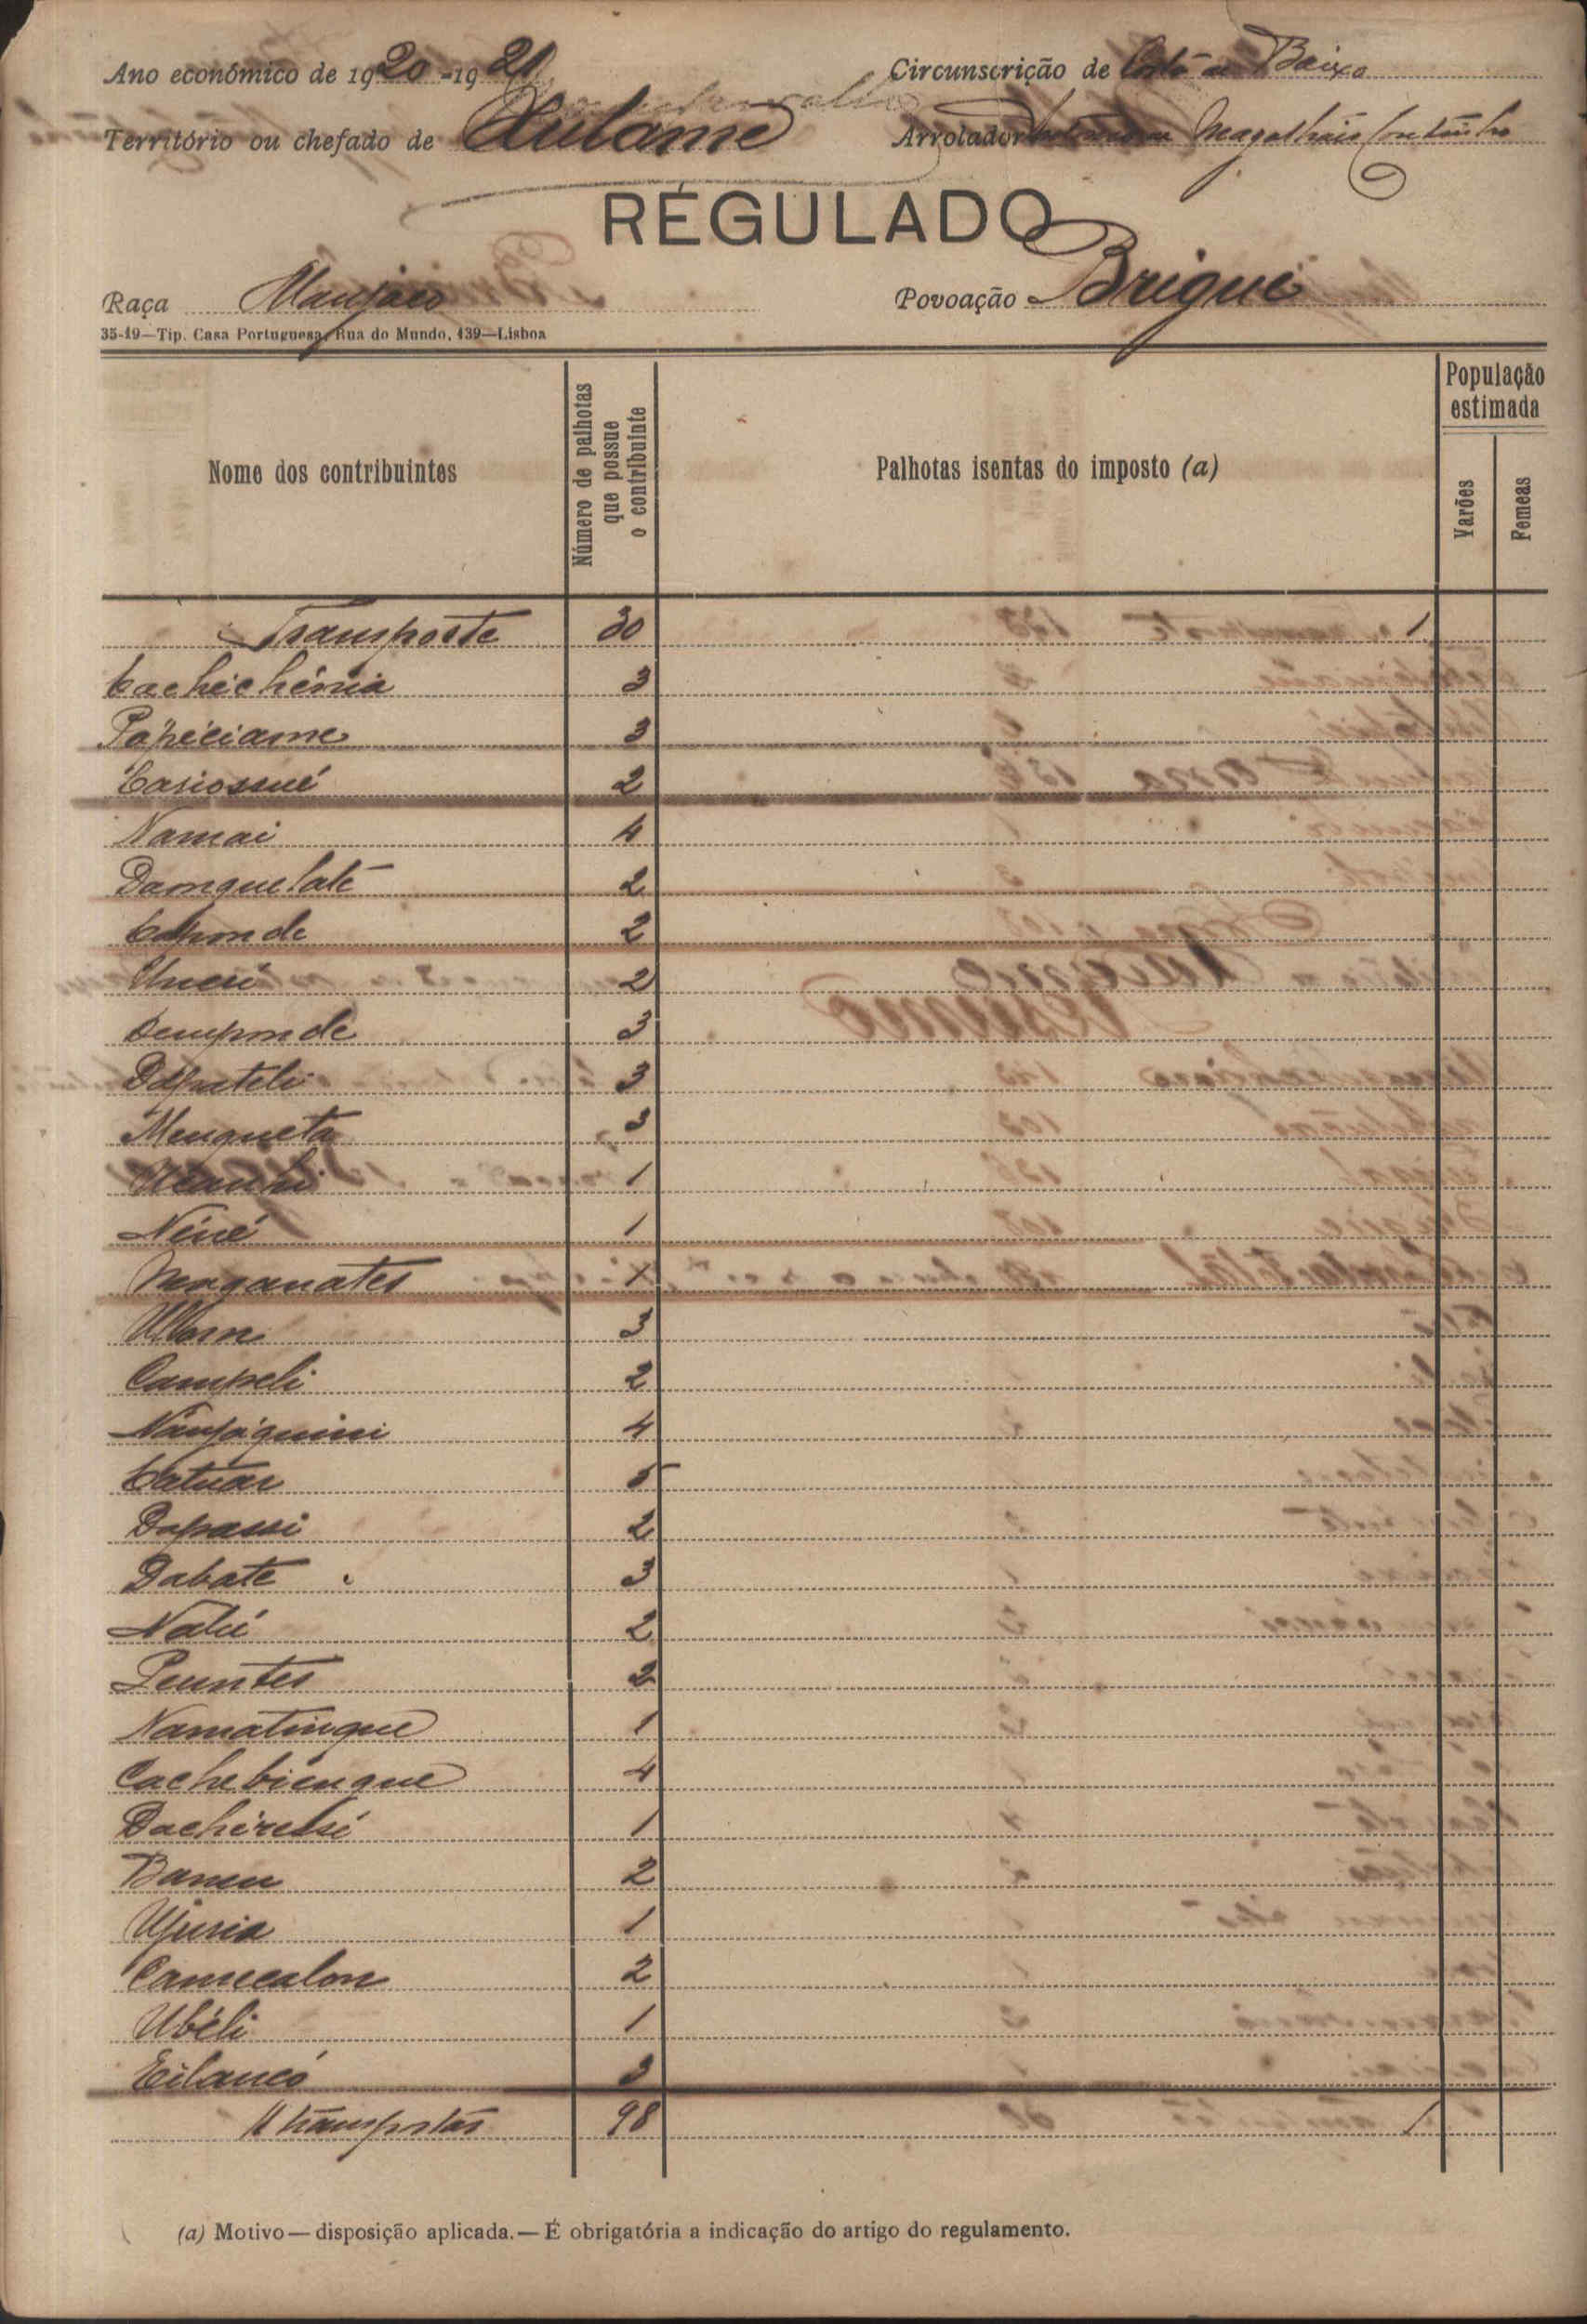 Ano económico de 1920-1921
Circunscrição de Costa de Baixo
Território ou chefado de
Arrolador Magalhães Coutinho
REGULADO
Raça Manjaco
Povoação Brigue
35-19—Tip. Casa Portuguesa, Rua do Mundo, 139—Lisboa
Nome dos contribuintes
Número de palhotas que possue o contribuinte
Palhotas isentas do imposto (a)
População estimada
Varões
Femeas
Transporte 30 1
Cachichénia 3
Papéciame 3
Casiossué 2
Namai 4
Damquelaté 2
Caponde 2
Unesi 2
Demponde 3
3
Menqueta 3
1
Néné 1
Manganates 1
Ulom 3
Campeli 2
Naupáquini 4
Catuar 5
Dapassi 2
Dabate 3
Nalú 2
Peuntes 2
Namatinque 1
Cachebienque 4
Dachiretsi 1
Banen 2
Ujuria 1
Camecalon 2
Ubéli 1
Eilancó 3
A transportar 98 1
(a) Motivo—disposição aplicada.—É obrigatória a indicação do artigo do regulamento.